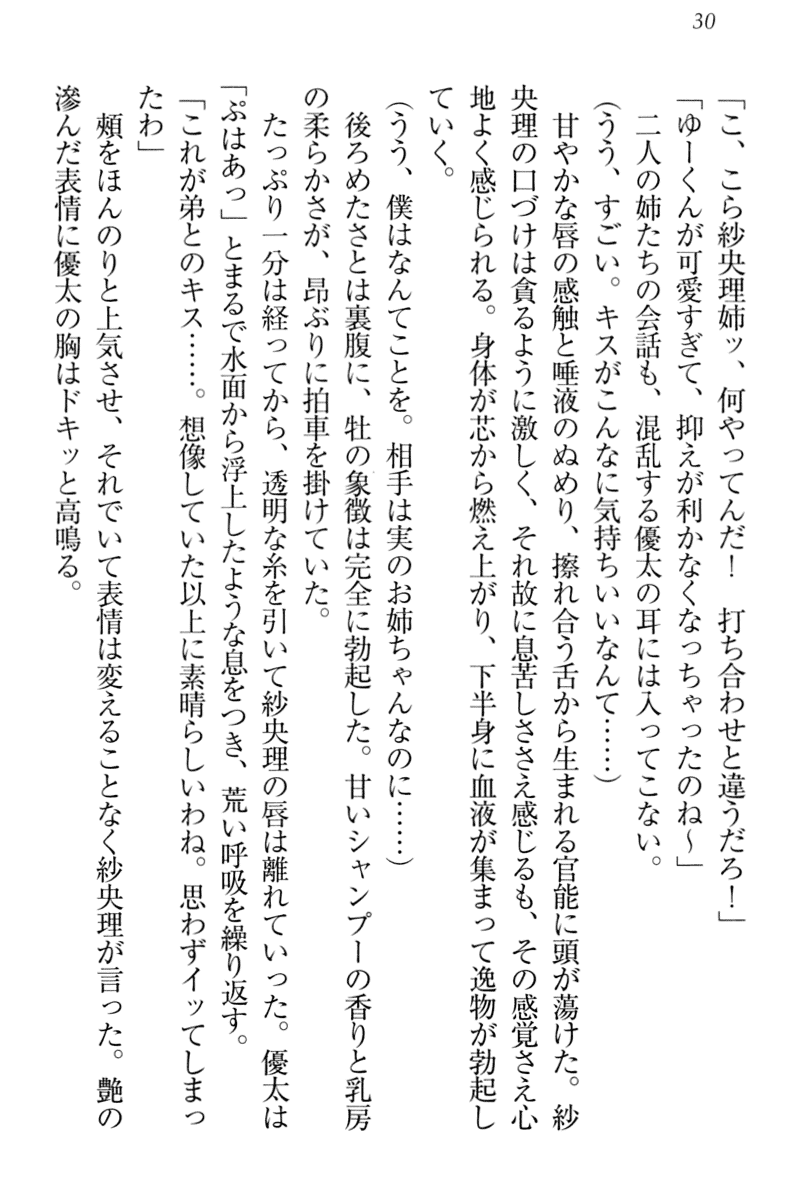 30
「こ、こら紗央理姉ッ、何やってんだ！　打ち合わせと違うだろ！」
「ゆーくんが可愛すぎて、抑えが利かなくなっちゃったのね～」
二人の姉たちの会話も、混乱する優太の耳には入ってこない。
（うう、すごい。キスがこんなに気持ちいいなんて……）
甘やかな唇の感触と唾液のぬめり、擦れ合う舌から生まれる官能に頭が蕩けた。紗
央理の口づけは貪るように激しく、それ故に息苦しささえ感じるも、その感覚さえ心
地よく感じられる。身体が芯から燃え上がり、下半身に血液が集まって逸物が勃起し
ていく。
（うう、僕はなんてことを。相手は実のお姉ちゃんなのに……）
後ろめたさとは裏腹に、牡の象徴は完全に勃起した。甘いシャンプーの香りと乳房
の柔らかさが、昂ぶりに拍車を掛けていた。
たっぷり一分は経ってから、透明な糸を引いて紗央理の唇は離れていった。優太は
「ぷはあっ」とまるで水面から浮上したような息をつき、荒い呼吸を繰り返す。
「これが弟とのキス……。想像していた以上に素晴らしいわね。思わずイッてしまっ
たわ」
頬をほんのりと上気させ、それでいて表情は変えることなく紗央理が言った。艶の
滲んだ表情に優太の胸はドキッと高鳴る。